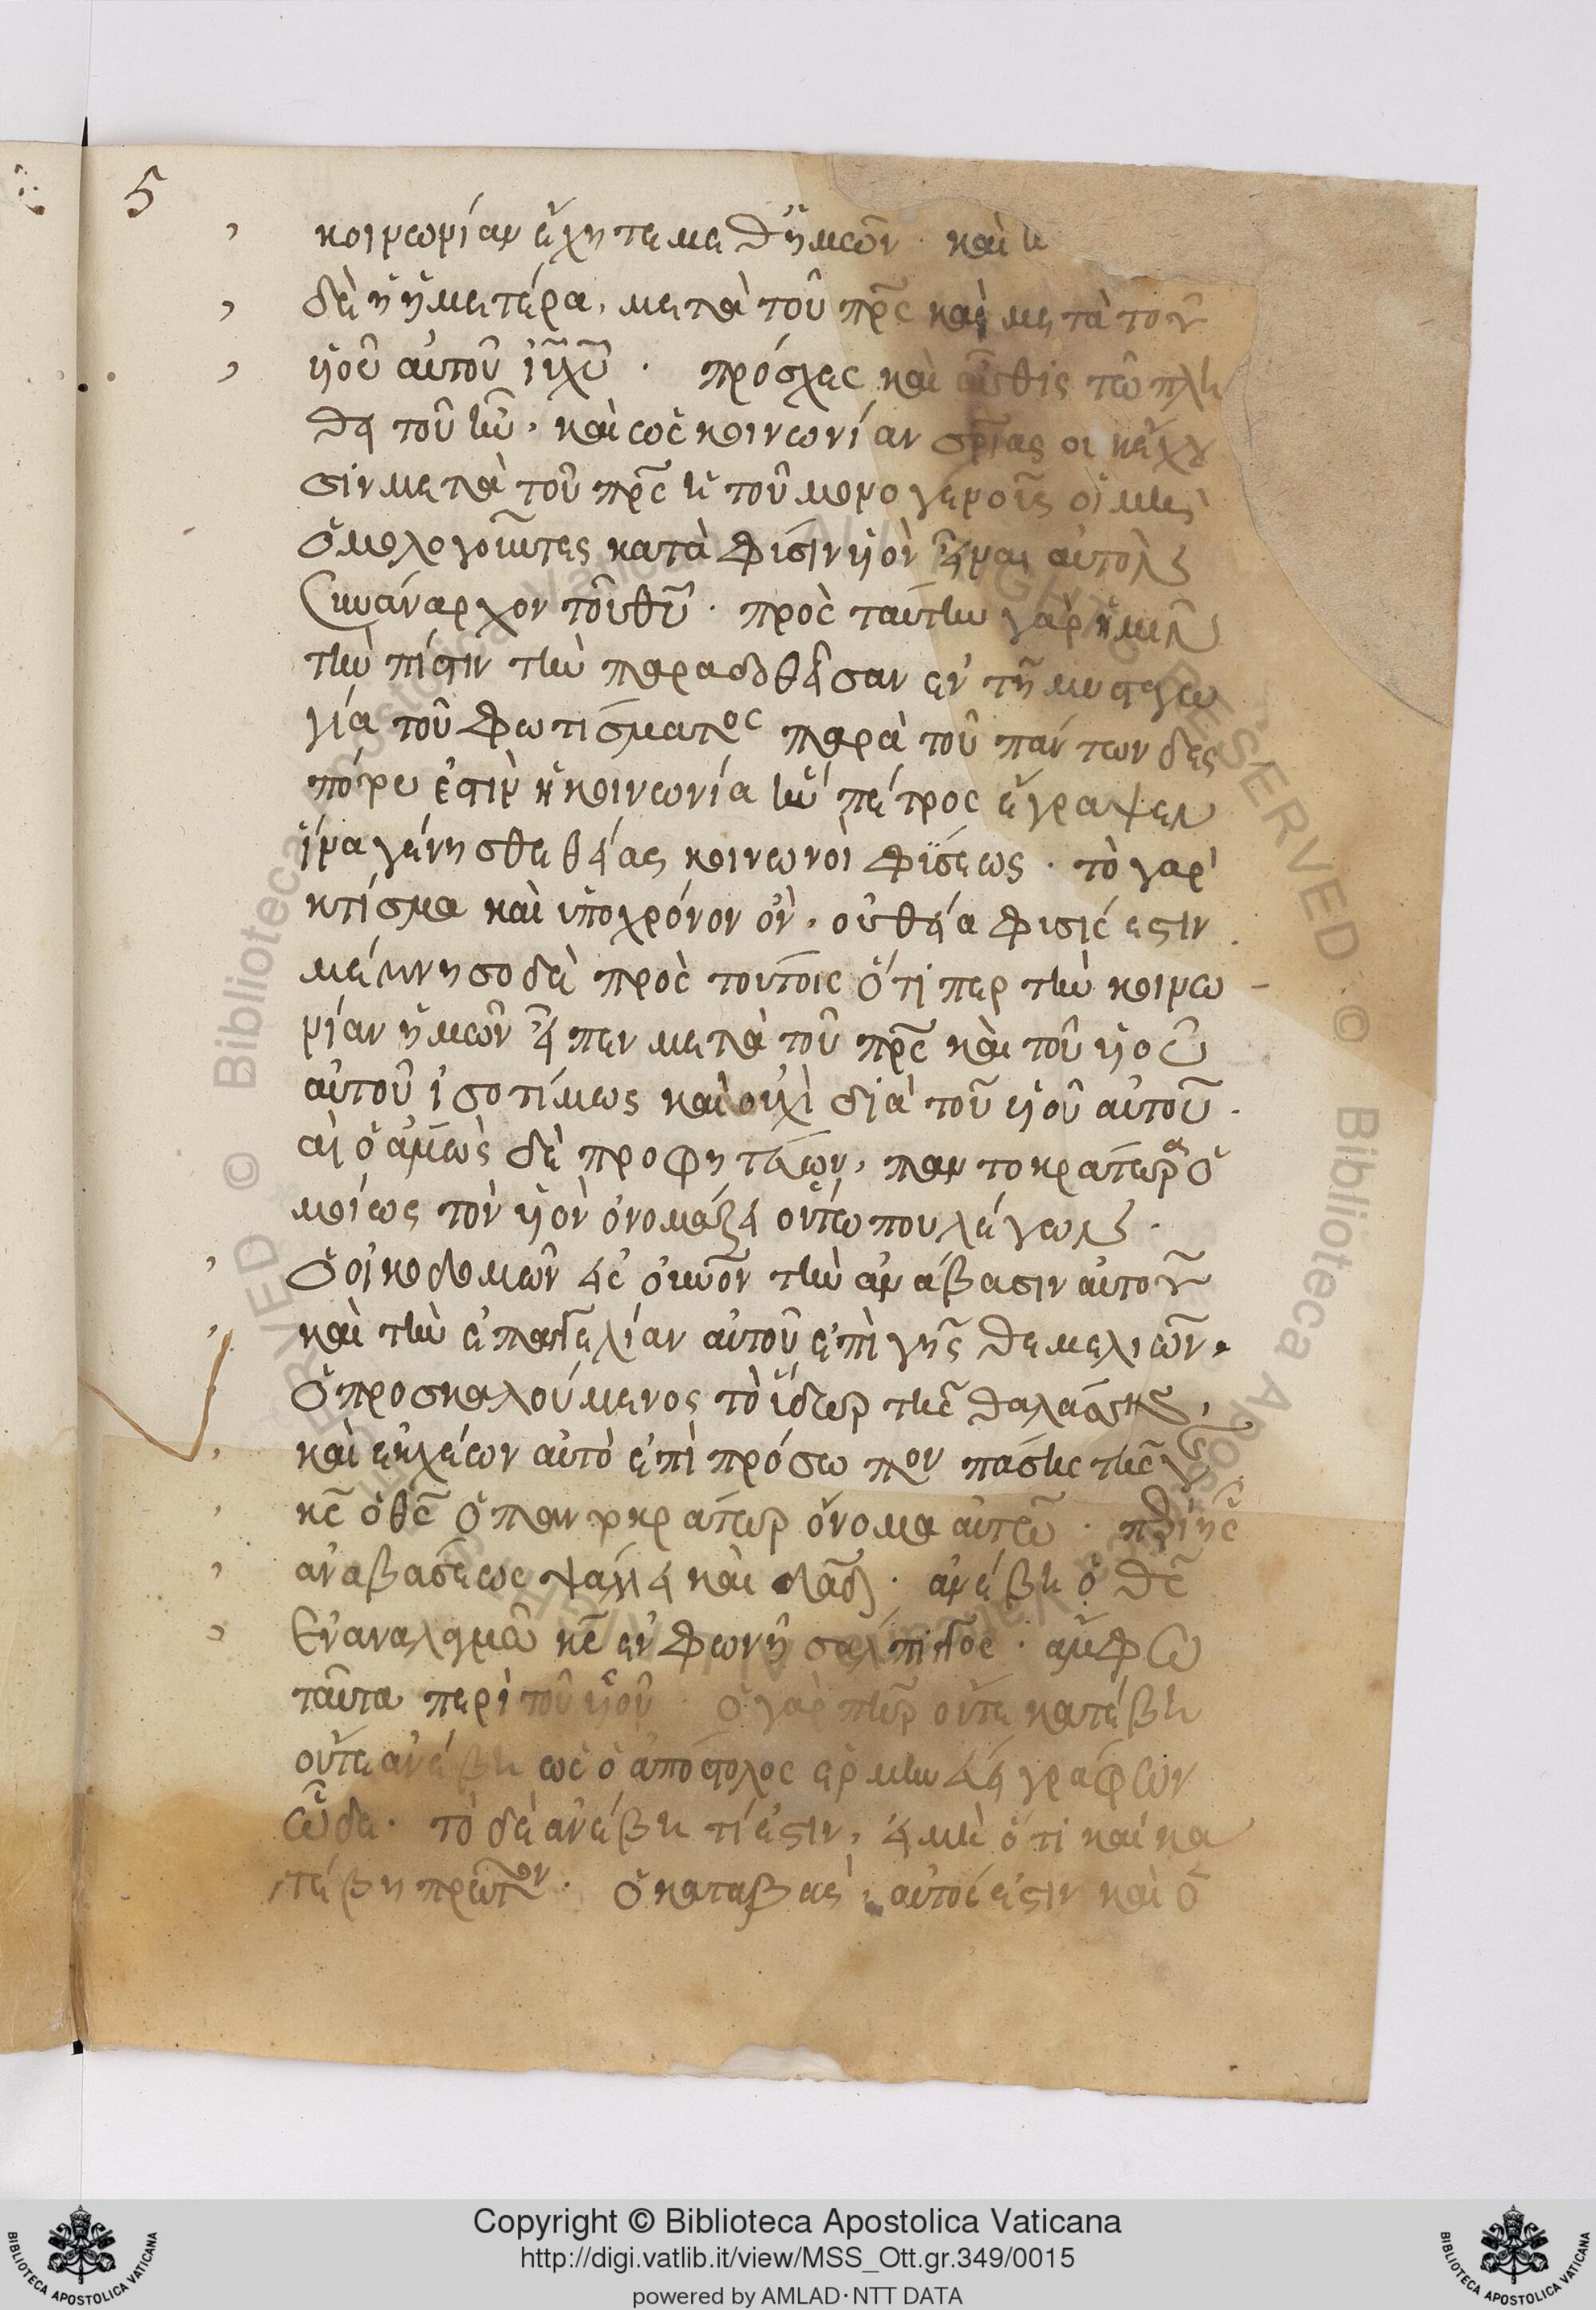 5
κοινωνίαν ἔχητε μεθ' ἡμῶν · καὶ
δὲ ἡ ἡμετέρα, μετὰ τοῦ πρς καὶ μετὰ τοῦ
ϋοῦ αὐτοῦ ιυ χυ · πρόσχες καὶ αὖθις τῶ πλη
θει τοῦ ην · καὶ ὡς κοινωνίαν οι κ ἔχου
σιν μετὰ τοῦ πρς κ τοῦ μονογενοῦς οἱ μὴ
ὁμολογοῦντες κατὰ φύσιν ϋὸν εἶναι αὐτὸν
κ συνάναρχον τοῦ θυ · πρὸς ταύτην γὰρ ἡμῖν
τὴν πίστιν τὴν παραδοθεῖσαν ἐν τῆ μυσταγω
γία τοῦ φωτίσματος παρὰ τοῦ πάντων δεσ
πότου ἐστὶν ἡ κοινωνία ἣν πέτρος ἔγραψεν
ἵνα γένησθε θείας κοινωνοὶ φύσεως · τὸ γὰρ
κτίσμα καὶ ὑπὸ χρόνον ὂν, οὐ θεία φύσις ἐστιν
μέμνησο δὲ πρὸς τούτοις ὅτι περ τὴν κοινω
νίαν ἡμῶν εἶπεν μετὰ τοῦ πρς καὶ τοῦ ϋοῦ
αὐτοῦ ἰσοτίμως καὶ οὐχὶ διὰ τοῦ ϋοῦ αὐτοῦ ·
ὁ ἀμὼς δὲ προφητεύων, παντοκράτωρα ὁ
μοίως τὸν ϋὸν ὀνομάζει οὕτω που λέγων ·
ὁ οἰκοδομῶν εἰς οὐνὸν τὴν ἀνάβασιν αὐτοῦ
καὶ τὴν ἐπαγγελίαν αὐτοῦ ἐπὶ γῆς θεμελιῶν ·
ὁ προσκαλούμενος τὸ ὕδωρ τῆς θαλάσσης,
καὶ ἐκχέων αὐτὸ ἐπὶ πρόσωπον πάσης τῆς γῆς
κς ὁ θς ὁ παντοκράτωρ ὄνομα αὐτῶ · περὶ ἧς
ἀναβάσεως ψάλλει καὶ δαδ · ἀνέβη ὁ θς
ἐν ἀναλαγμῶ κς ἐν φωνῆ σάλπιγγος · ἄμφω
ταῦτα περὶ τοῦ ϋοῦ · ὁ γὰρ πηρ οὔτε κατέβη
οὔτε ἀνέβη ὡς ὁ ἀπόστολος ἑρμηνεύει γράφων
ὧδε · τὸ δὲ ἀνέβη τί ἐστιν, εἰ μὴ ὅτι καὶ κα
τέβη πρῶτον · ὁ καταβὰς, αὐτός ἐστιν καὶ ὁ
Copyright © Biblioteca Apostolica Vaticana
http://digi.vatlib.it/view/MSS_Ott.gr.349/0015
powered by AMLAD·NTT DATA